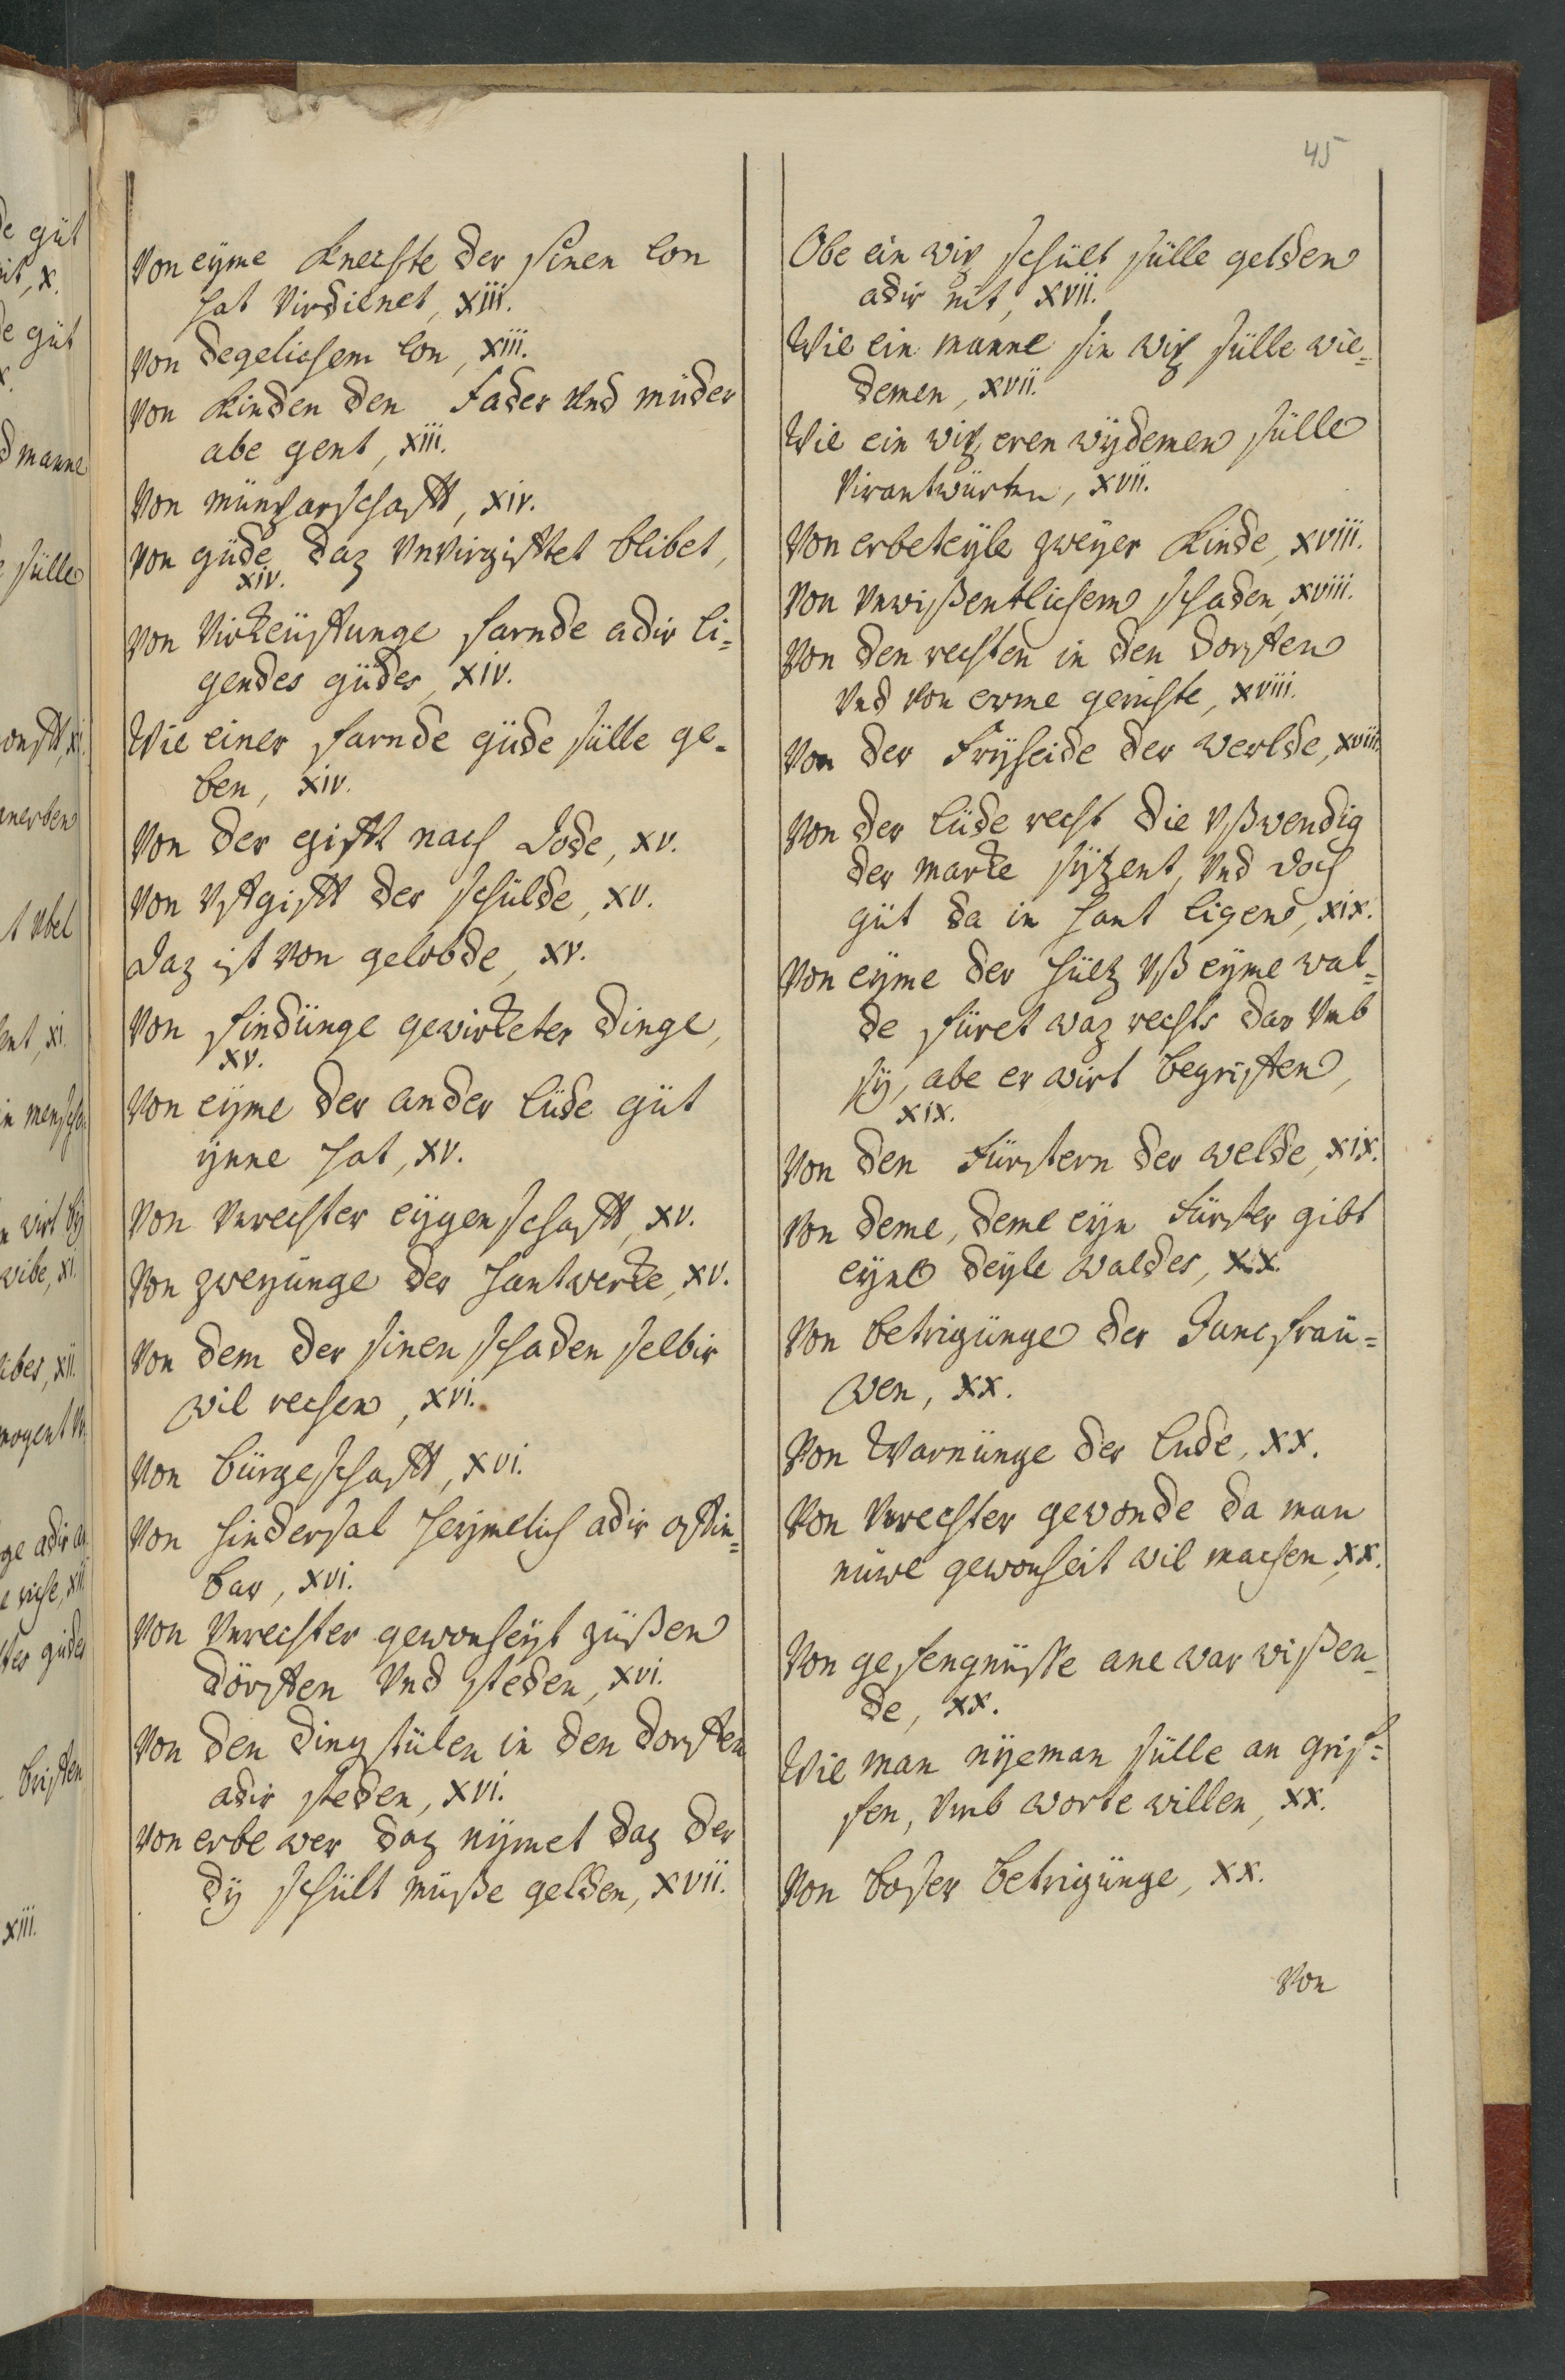 45
Von eyme Knechte der sinen lon
hat virdienet, xiii.
Von degelichem lon, xiii.
Von Kinden den Fader und müder
abe gent, xiii.
Von münparschafft, xiv.
Von güde daz unvirgifftet blibet,
xiv.
Von virkeüffunge farnde adir li-
gendes güdes, xiv.
Wie einer farnde güde sülle ge-
ben, xiv.
Von der gifft nach Dode, xv.
Von uffgifft der schülde, xv.
Daz ist von gelobde, xv.
Von findünge gewirketer dinge,
xv.
Von eyme der ander lüde güt
ynne hat, xv.
Von unrechter eygenschafft, xv.
Von zweyünge der hantwerke, xv.
Von dem der sinen schaden selbir
wil rechen, xvi.
Von bürgeschafft, xvi.
Von hindersal heymelich adir offin-
bar, xvi.
Von unrechter gewonheyt züßen
dörffen und steden, xvi.
Von den dingstülen in den dorffen
adir steden, xvi.
Von erbe wer daz nymet daz der
dy schült müße gelden, xvii.
Obe ein wip schült sülle gelden
adir nit, xvii.
Wie ein manne sin wip sülle wie-
demen, xvii.
Wie ein wip eren wydemen sülle
virantwürten, xvii.
Von erbeteyle zweyer Kinde, xviii.
Von unwißentlichem schaden, xviii.
Von den rechten in den dorffen
und von erme gerichte, xviii.
Von der Fryheide der werlde, xviii.
Von der lüde recht die ußwendig
der marke sytzent, und doch
güt da in hant ligen, xix.
Von eyme der hültz uß eyme wal-
de füret waz rechts dar umb
sy, abe er wirt begriffen,
xix.
Von den Fürstern der welde, xix.
Von deme, deme eyn Fürster gibt
eyne deyle waldes, xx.
Von betrigünge der Juncfraü-
wen, xx.
Von Warnünge der lude, xx.
Von unrechter gewonde da man
nüwe gewonheit wil machen, xx.
Von gefengnüsse ane war wißen-
de, xx.
Wie man nyeman sülle an grif-
fen, umb worte willen, xx.
Von boser betrigünge, xx.
Von